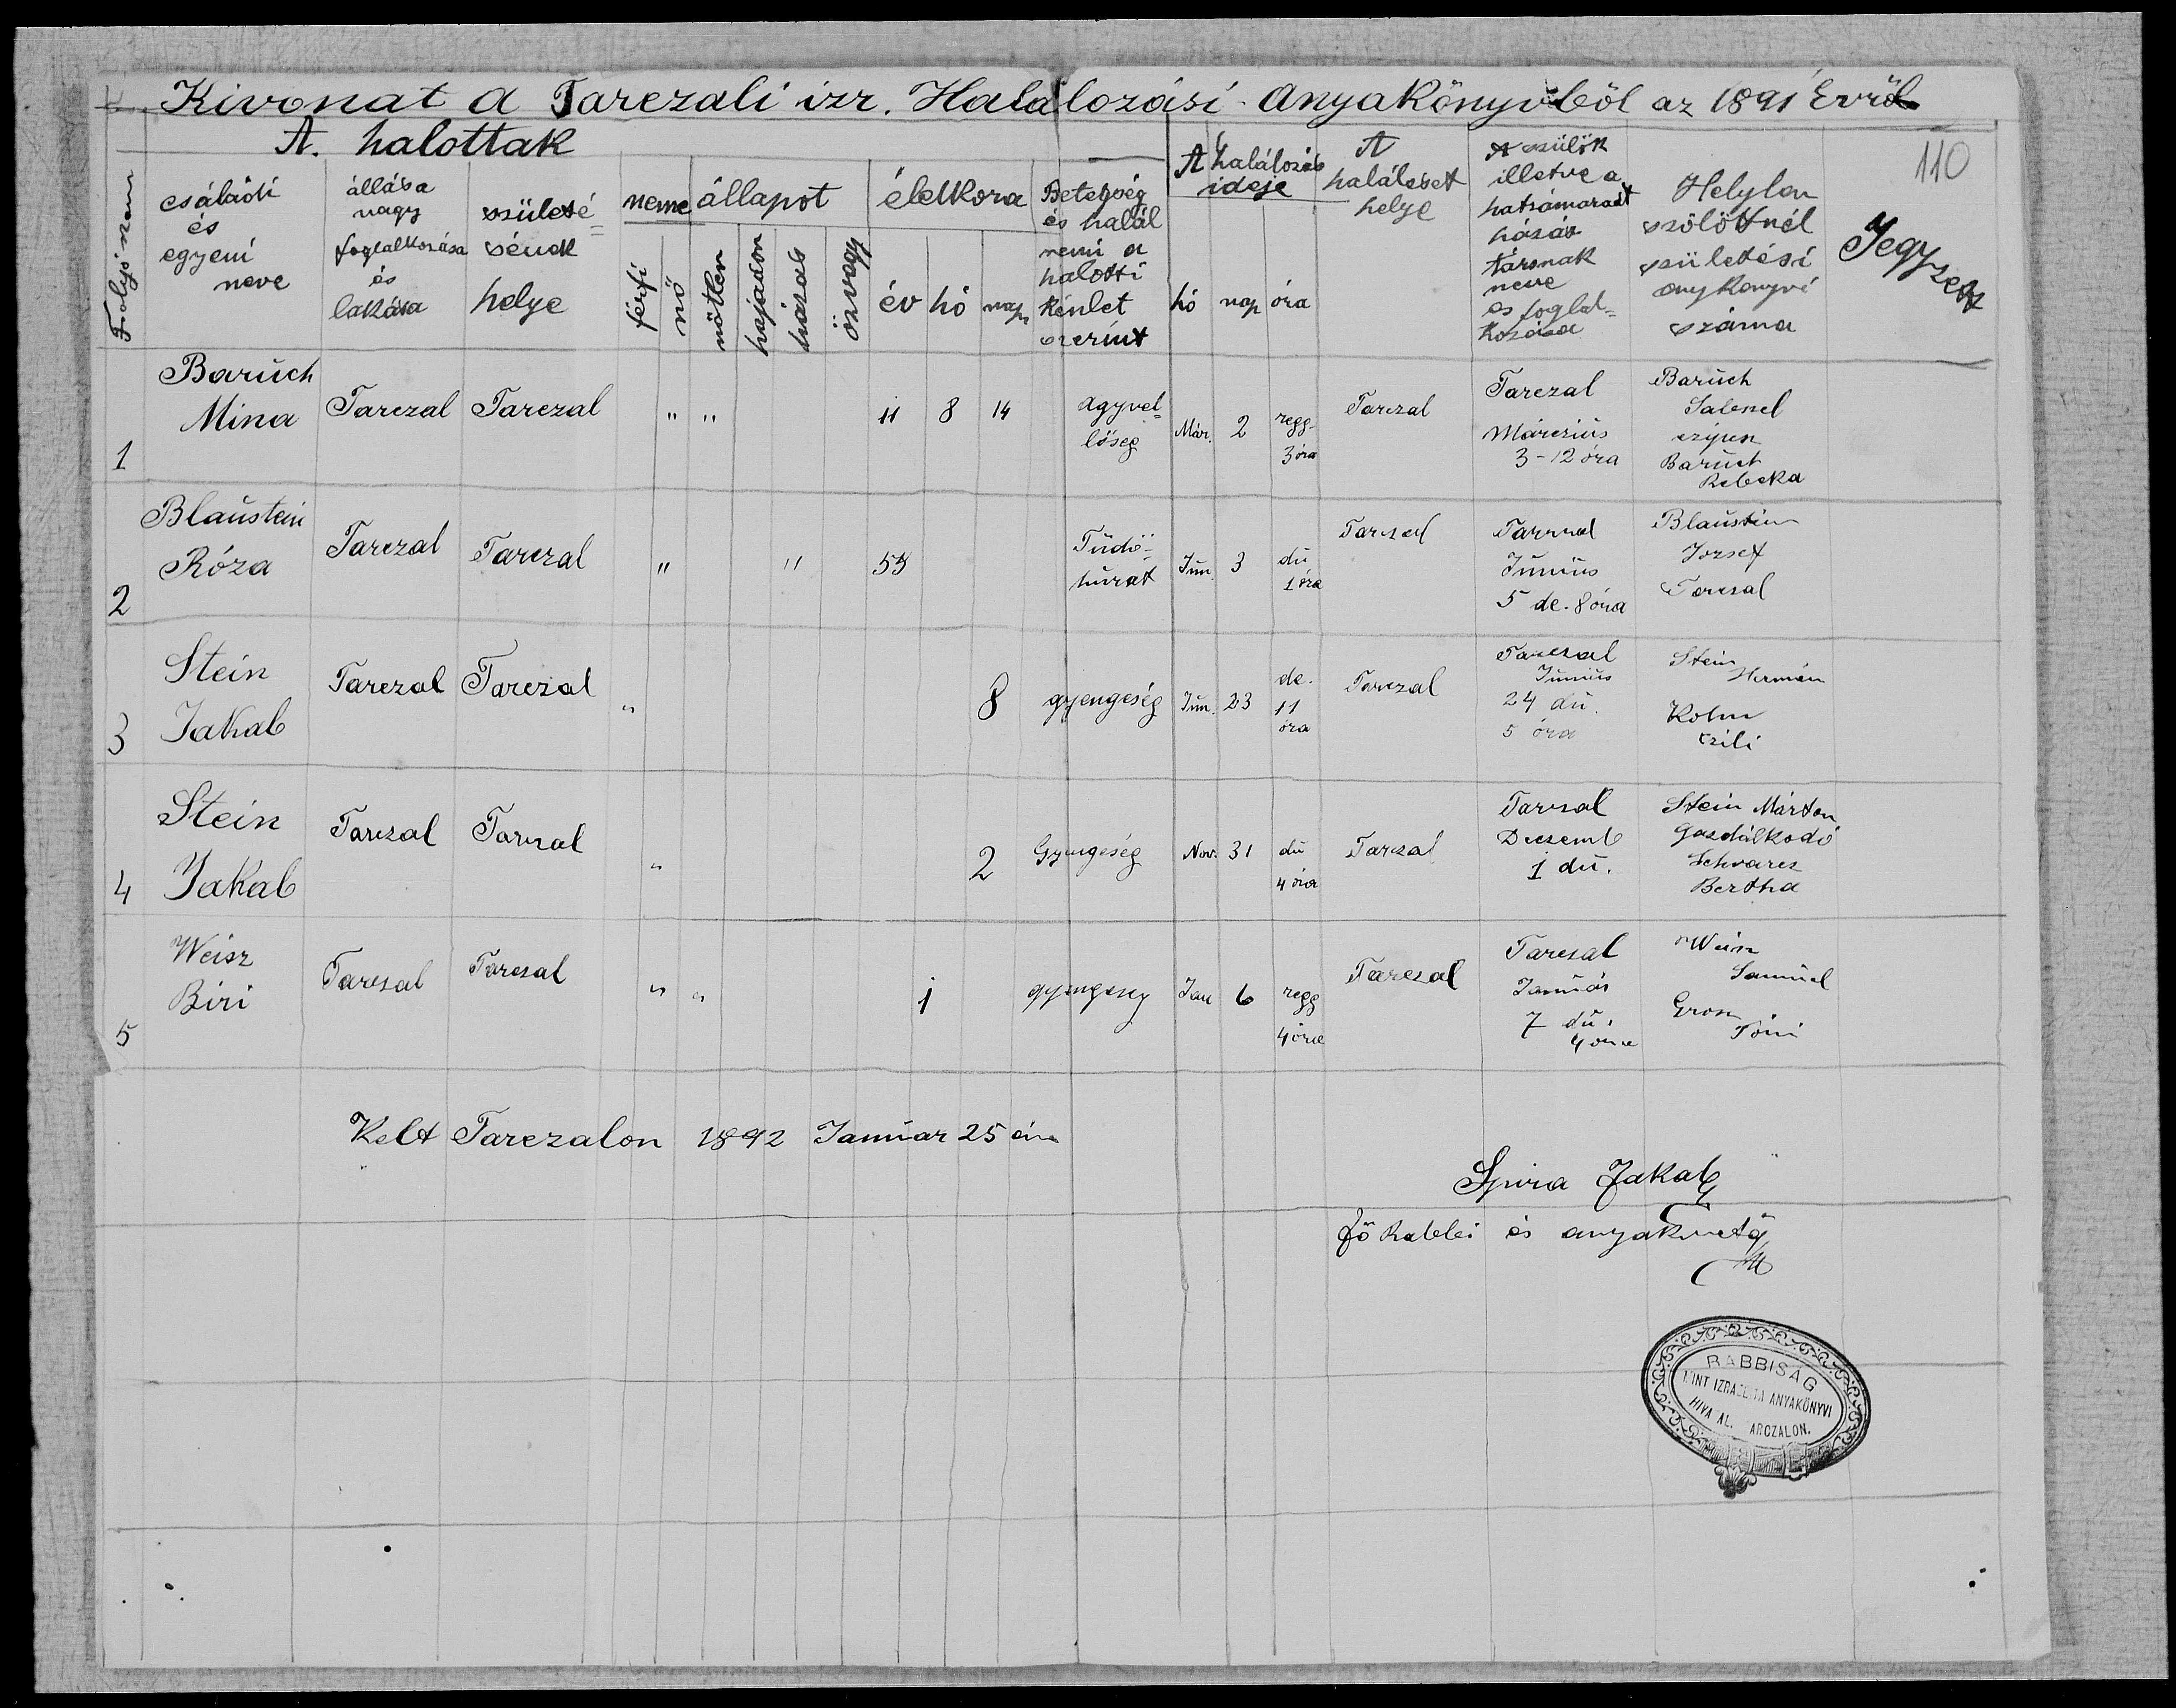 Kivonat a Tarczali izr. Halálozási Anyakönyvből az 1891 Évről
110
A. halottak
Folyó szám
családi
és
egyeni
neve
állása
vagy
foglalkozása
és
lakása
születé=
sének
helye
neme
férfi
nő
állapot
nőtlen
hajadon
házas
özvegy
életkora
év hó nap
Betegség
és halál
nemi a
halotti
kémlet
szerint
A halálozás
ideje
hó nap óra
A
haláleset
helye
A szülők
illetve a
hátramaradt
házas
társnak
neve
és foglal=
kozása
Helyben
szülöttnél
születési
anykönyvi
száma
Jegyzet
1
Baruch
Mina
Tarczal
Tarczal
" "
11 8 14
agyvel=
lőseg
Már. 2
regg.
3 óra
Tarczal
Tarczal
Márczius
3-12 óra
Baruch
Baruch
Rebeka
2
Blaustein
Róza
Tarczal
Tarczal
" "
55
Tüdő=
hurut
Jun. 3
du
1 óra
Tarczal
Tarczal
Junius
5 de. 8 óra
Blaustein
Jozsef
Tarczal
3
Stein
Jakab
Tarczal
Tarczal
"
8
gyengeség
Jun. 23
de.
11
óra
Tarczal
Tarczal
Junius
24 du.
5 óra
Stein
Hermán
Kohn
czili
4
Stein
Jakab
Tarczal
Tarczal
"
2
Gyengeség
Nov. 31
du
4 óra
Tarczal
Tarczal
Deczemb
1 du.
Stein Márton
Gazdálkodó
Schvarcz
Bertha
5
Weisz
Biri
Tarczal
Tarczal
" "
1
gyengeseg
Jan 6
regg
4 óra
Tarczal
Tarczal
Január
7 du.
4 óra
Weisz
Samuel
Grosz
Tóni
Kelt Tarczalon 1892 Januar 25 én
Spira Jakab
fő Rabbi és anyakvető
RABBISÁG
MINT IZRAELITA ANYAKÖNYVI
HIVA AL. ARCZALON.